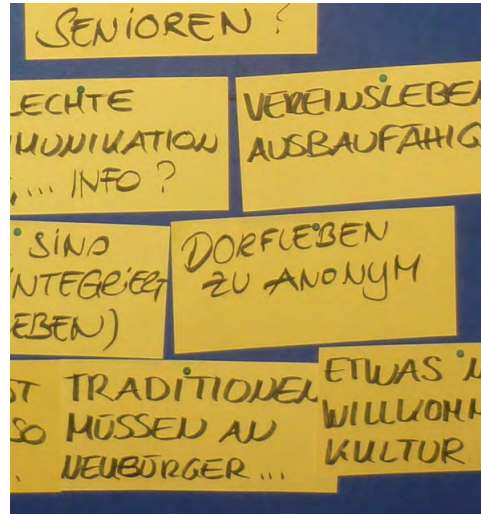 SENIOREN ?
LECHTE
MUNIKATION
,... INFO ?
VEREINSLEBEN
AUSBAUFÄHIG
SIND
INTEGRIERT
EBEN)
DORFLEBEN
ZU ANONYM
ST
SO
.
TRADITIONEN
MÜSSEN AN
NEUBÜRGER ...
ETWAS
WILLKOMM
KULTUR